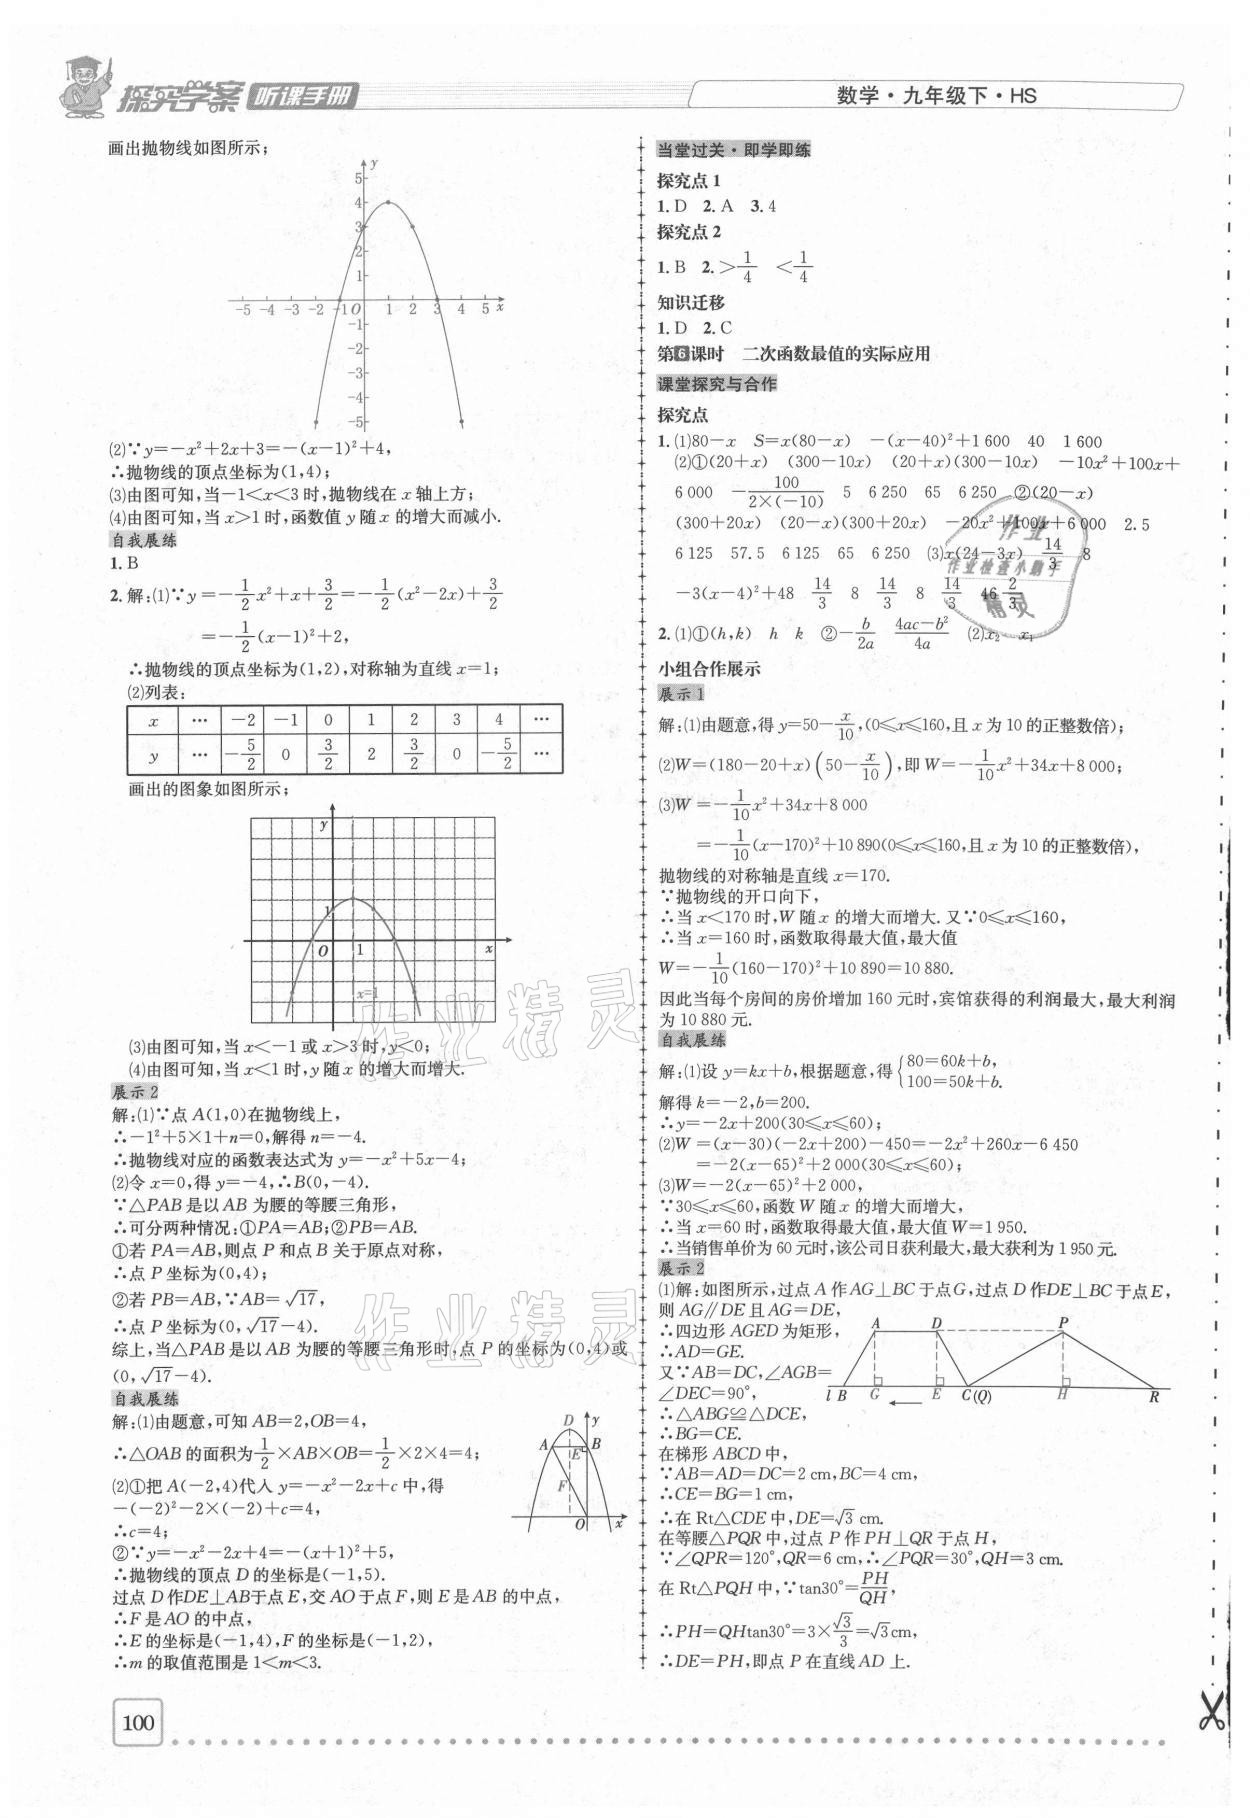 探究学案 听课手册
数学·九年级下·HS
画出抛物线如图所示;
y
5
4
3
2
1
-5 -4 -3 -2 -1 O 1 2 3 4 5 x
-1
-2
-3
-4
-5
(2)∵y=-x²+2x+3=-(x-1)²+4,
∴抛物线的顶点坐标为(1,4);
(3)由图可知,当-1<x<3时,抛物线在x轴上方;
(4)由图可知,当x>1时,函数值y随x的增大而减小.
自我展练
1. B
2. 解:(1)∵y=-1/2x²+x+3/2=-1/2(x²-2x)+3/2
=-1/2(x-1)²+2,
∴抛物线的顶点坐标为(1,2),对称轴为直线x=1;
(2)列表:
x … -2 -1 0 1 2 3 4 …
y … -5/2 0 3/2 2 3/2 0 -5/2 …
画出的图象如图所示;
y
1
O 1 x
x=1
(3)由图可知,当x<-1或x>3时,y<0;
(4)由图可知,当x<1时,y随x的增大而增大.
展示2
解:(1)∵点A(1,0)在抛物线上,
∴-1²+5×1+n=0,解得n=-4.
∴抛物线对应的函数表达式为y=-x²+5x-4;
(2)令x=0,得y=-4,∴B(0,-4).
∵△PAB是以AB为腰的等腰三角形,
∴可分两种情况:①PA=AB;②PB=AB.
①若PA=AB,则点P和点B关于原点对称,
∴点P坐标为(0,4);
②若PB=AB,∵AB=√17,
∴点P坐标为(0,√17-4).
综上,当△PAB是以AB为腰的等腰三角形时,点P的坐标为(0,4)或
(0,√17-4).
自我展练
解:(1)由题意,可知AB=2,OB=4,
∴△OAB的面积为1/2×AB×OB=1/2×2×4=4;
(2)①把A(-2,4)代入y=-x²-2x+c中,得
-(-2)²-2×(-2)+c=4,
∴c=4;
②∵y=-x²-2x+4=-(x+1)²+5,
∴抛物线的顶点D的坐标是(-1,5).
过点D作DE⊥AB于点E,交AO于点F,则E是AB的中点,
∴F是AO的中点,
∴E的坐标是(-1,4),F的坐标是(-1,2),
∴m的取值范围是1<m<3.
D y
A E B
F
O x
100
当堂过关·即学即练
探究点1
1. D 2. A 3. 4
探究点2
1. B 2. >1/4 <1/4
知识迁移
1. D 2. C
第6课时 二次函数最值的实际应用
课堂探究与合作
探究点
1. (1)80-x S=x(80-x) -(x-40)²+1 600 40 1 600
(2)①(20+x) (300-10x) (20+x)(300-10x) -10x²+100x+
6 000 -100/2×(-10) 5 6 250 65 6 250 ②(20-x)
(300+20x) (20-x)(300+20x) -20x²+100x+6 000 2.5
6 125 57.5 6 125 65 6 250 (3)x(24-3x) 14/3 8
-3(x-4)²+48 14/3 8 14/3 8 14/3 46 2/3
2. (1)①(h,k) h k ②-b/2a 4ac-b²/4a (2)x₂ x₁
小组合作展示
展示1
解:(1)由题意,得y=50-x/10,(0≤x≤160,且x为10的正整数倍);
(2)W=(180-20+x)(50-x/10),即W=-1/10x²+34x+8 000;
(3)W=-1/10x²+34x+8 000
=-1/10(x-170)²+10 890(0≤x≤160,且x为10的正整数倍),
抛物线的对称轴是直线x=170.
∵抛物线的开口向下,
∴当x<170时,W随x的增大而增大.又∵0≤x≤160,
∴当x=160时,函数取得最大值,最大值
W=-1/10(160-170)²+10 890=10 880.
因此当每个房间的房价增加160元时,宾馆获得的利润最大,最大利润
为10 880元.
自我展练
解:(1)设y=kx+b,根据题意,得{80=60k+b,
100=50k+b.
解得k=-2,b=200.
∴y=-2x+200(30≤x≤60);
(2)W=(x-30)(-2x+200)-450=-2x²+260x-6 450
=-2(x-65)²+2 000(30≤x≤60);
(3)W=-2(x-65)²+2 000,
∵30≤x≤60,函数W随x的增大而增大,
∴当x=60时,函数取得最大值,最大值W=1 950.
∴当销售单价为60元时,该公司日获利最大,最大获利为1 950元.
展示2
(1)解:如图所示,过点A作AG⊥BC于点G,过点D作DE⊥BC于点E,
则AG∥DE且AG=DE,
∴四边形AGED为矩形,
∴AD=GE.
又∵AB=DC,∠AGB=
∠DEC=90°,
∴△ABG≌△DCE,
∴BG=CE.
A D P
l B G E C(Q) H R
在梯形ABCD中,
∵AB=AD=DC=2 cm,BC=4 cm,
∴CE=BG=1 cm,
∴在Rt△CDE中,DE=√3 cm.
在等腰△PQR中,过点P作PH⊥QR于点H,
∵∠QPR=120°,QR=6 cm,∴∠PQR=30°,QH=3 cm.
在Rt△PQH中,∵tan30°=PH/QH,
∴PH=QHtan30°=3×√3/3=√3cm,
∴DE=PH,即点P在直线AD上.
作业精灵
作业精灵
作业
作业检查小助手
精灵